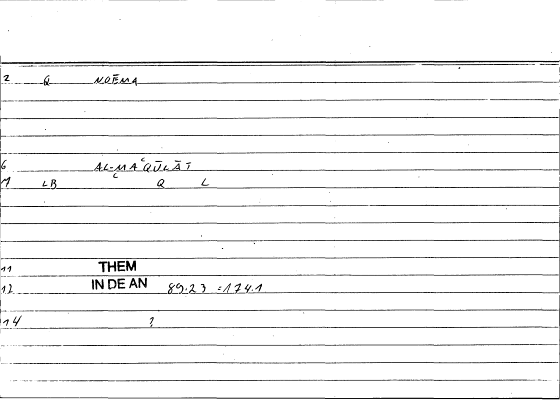 2 Q NOĒMA
6 AL-MAʿQŪLĀT
7 LB ʿ Q L
11 THEM
12 IN DE AN 89.23 =174.1
14 ?